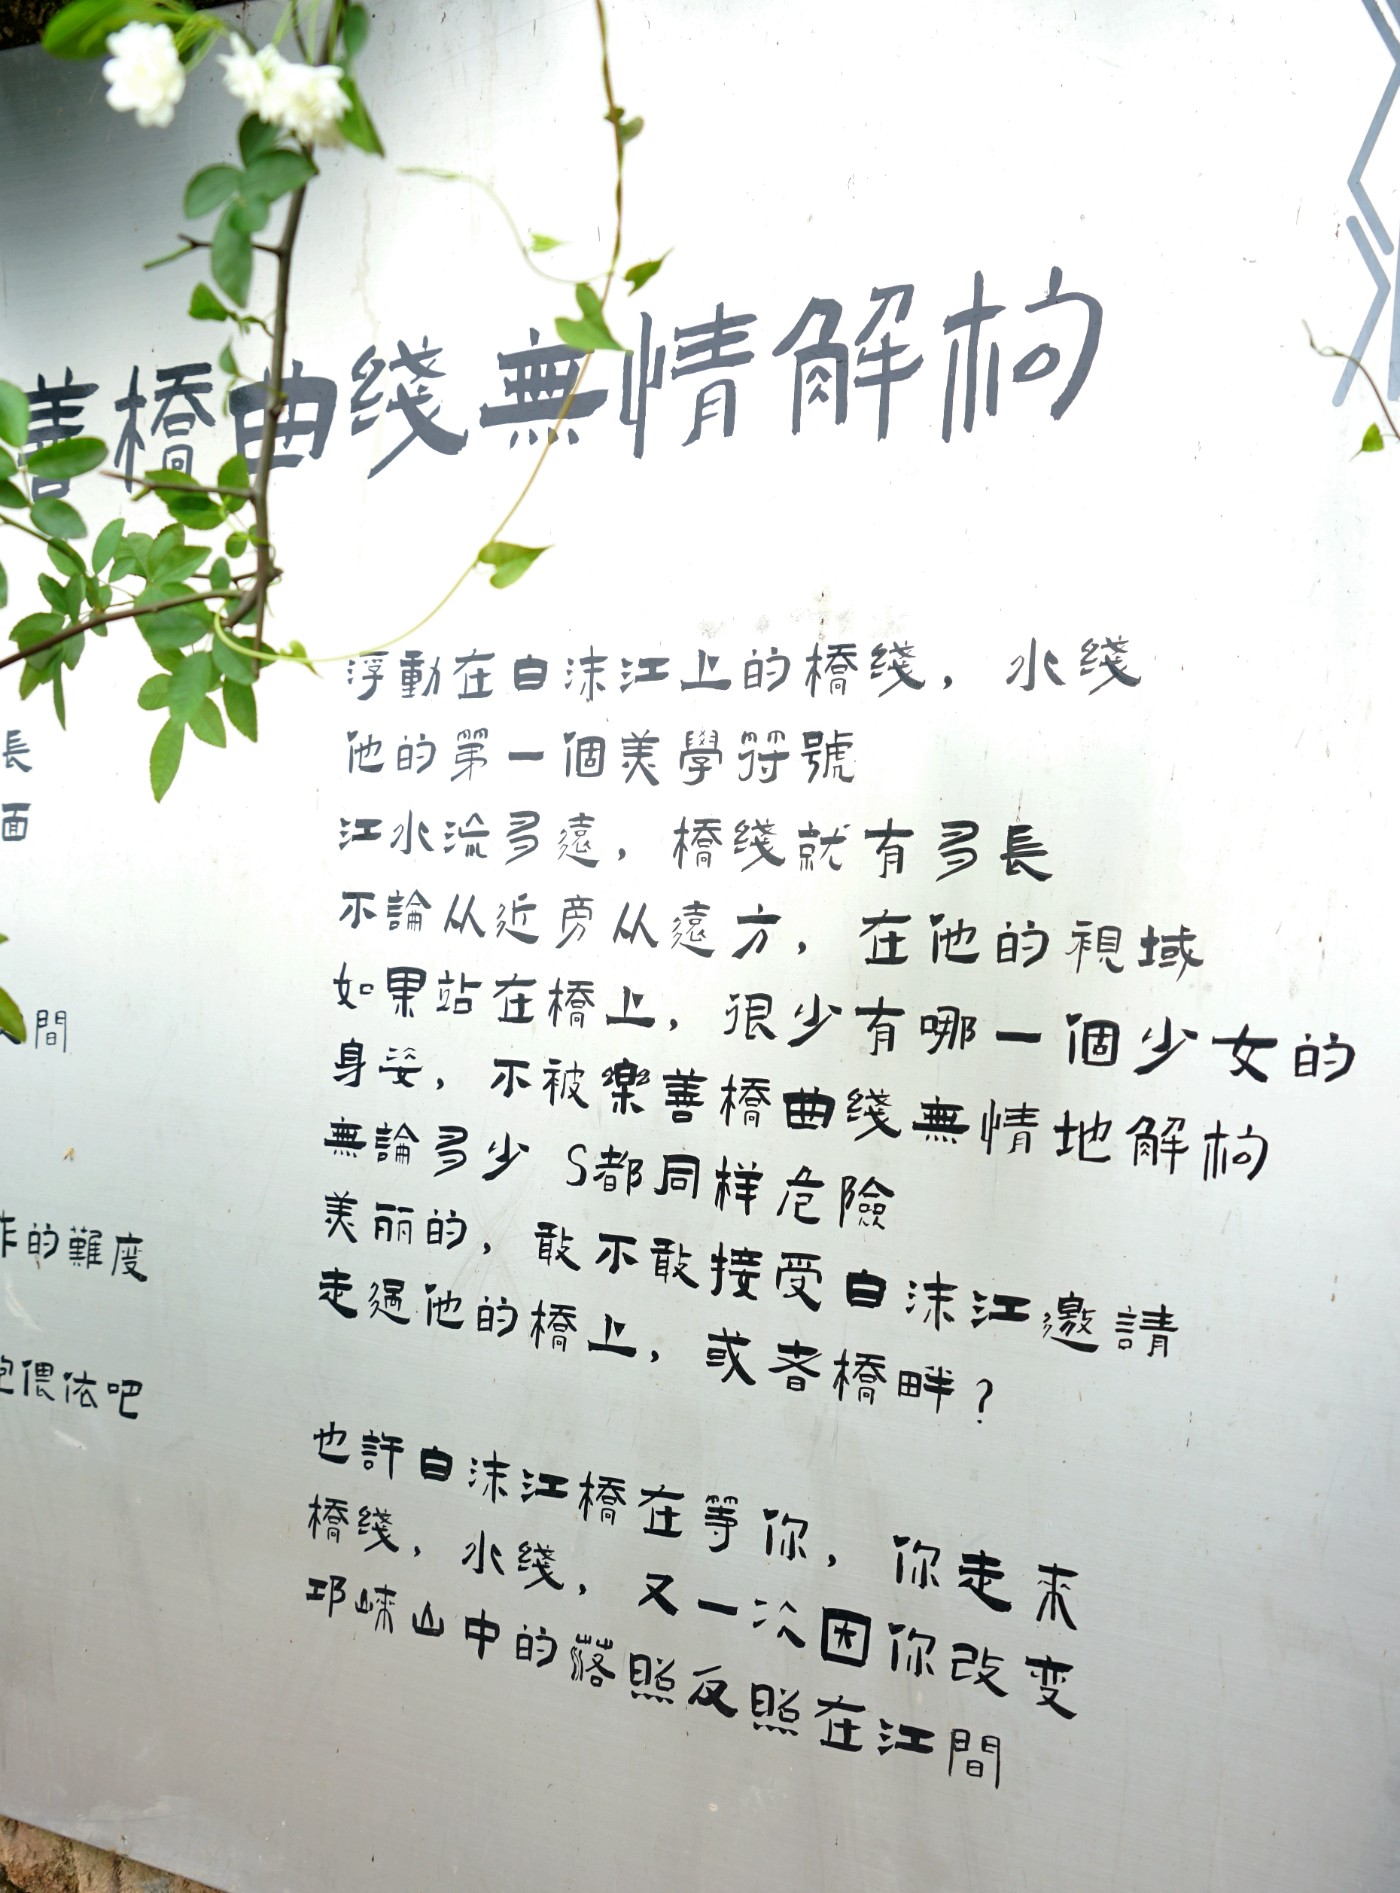 善橋曲綫無情解构
長
面
間
作的難度
偎依吧
浮動在白沫江上的橋綫，水綫
他的第一個美學符號
江水流多遠，橋綫就有多長
不論从近旁从遠方，在他的視域
如果站在橋上，很少有哪一個少女的
身姿，不被樂善橋曲綫無情地解构
無論多少 S都同样危險
美丽的，敢不敢接受白沫江邀請
走過他的橋上，或者橋畔？
也許白沫江橋在等你，你走來
橋綫，水綫，又一次因你改变
邛崍山中的落照反照在江間